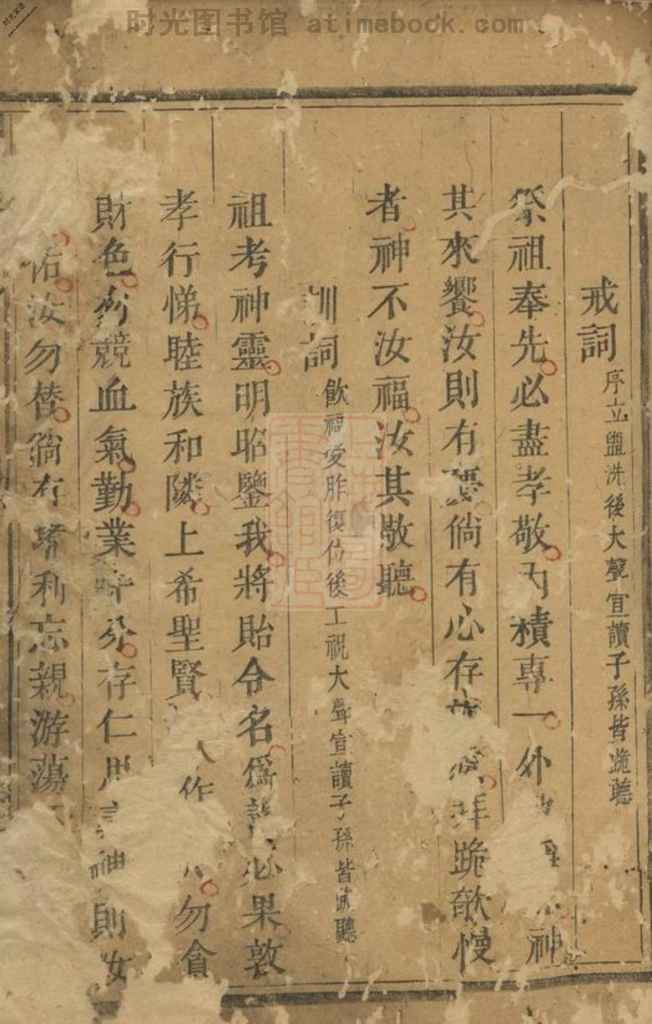 时光图书馆 atimebook.com
戒詞 序立盥洗後大聲宣讀子孫皆跪聽
祭祖奉先必盡孝敬內積專一外神
其來饗汝則有慶倘有心存拜跪欹慢
者神不汝福汝其敬聽
訓詞 飲福受胙復位後工祝大聲宣讀子孫皆跪聽
祖考神靈明昭鑒我將貽令名爲必果敦
孝行悌睦族和隣上希聖賢作勿貪
財色勿競血氣勤業守分存仁神則汝
佑汝勿替倘有嗜利忘親游蕩